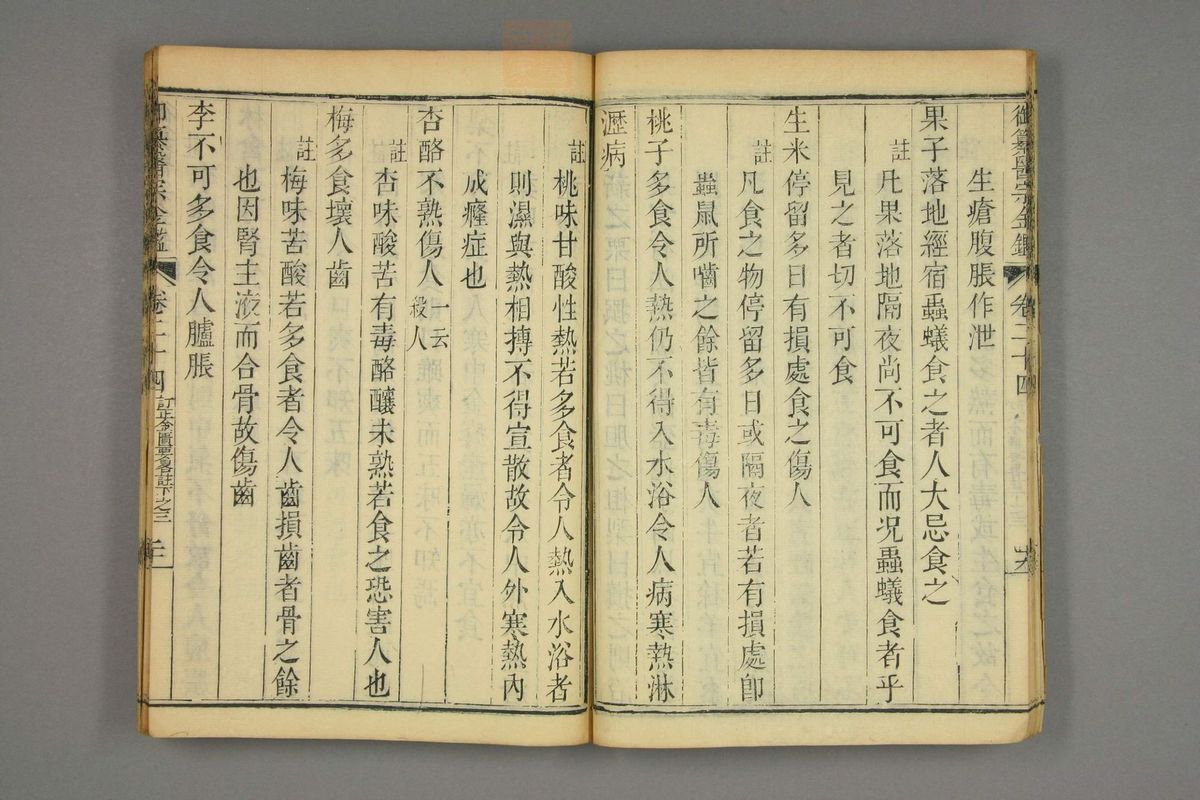 御纂醫宗金鑑 卷二十四
生瘡腹脹作泄
果子落地經宿蟲蟻食之者人大忌食之
註 凡果落地隔夜尚不可食而况蟲蟻食者乎
見之者切不可食
生米停留多日有損處食之傷人
註 凡食之物停留多日或隔夜者若有損處卽
蟲鼠所嚙之餘皆有毒傷人
桃子多食令人熱仍不得入水浴令人病寒熱淋
瀝病
註 桃味甘酸性熱若多食者令人熱入水浴者
則濕與熱相搏不得宣散故令人外寒熱內
成癃症也
杏酪不熟傷人一云殺人
註 杏味酸苦有毒酪釀未熟若食之恐害人也
梅多食壞人齒
註 梅味苦酸若多食者令人齒損齒者骨之餘
也因腎主液而合骨故傷齒
李不可多食令人臚脹
御纂醫宗金鑑 卷二十四 訂正金匱要畧註下之三